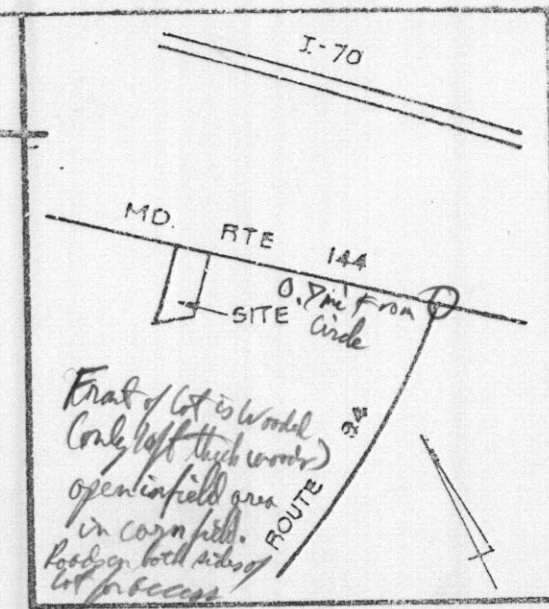 I-70
MD. RTE 144
SITE
0.7mi from
Circle
ROUTE 94
Front of lot is wooded
(only left thick woods)
open infield area
in cornfield.
Roads on both sides of
lot for access